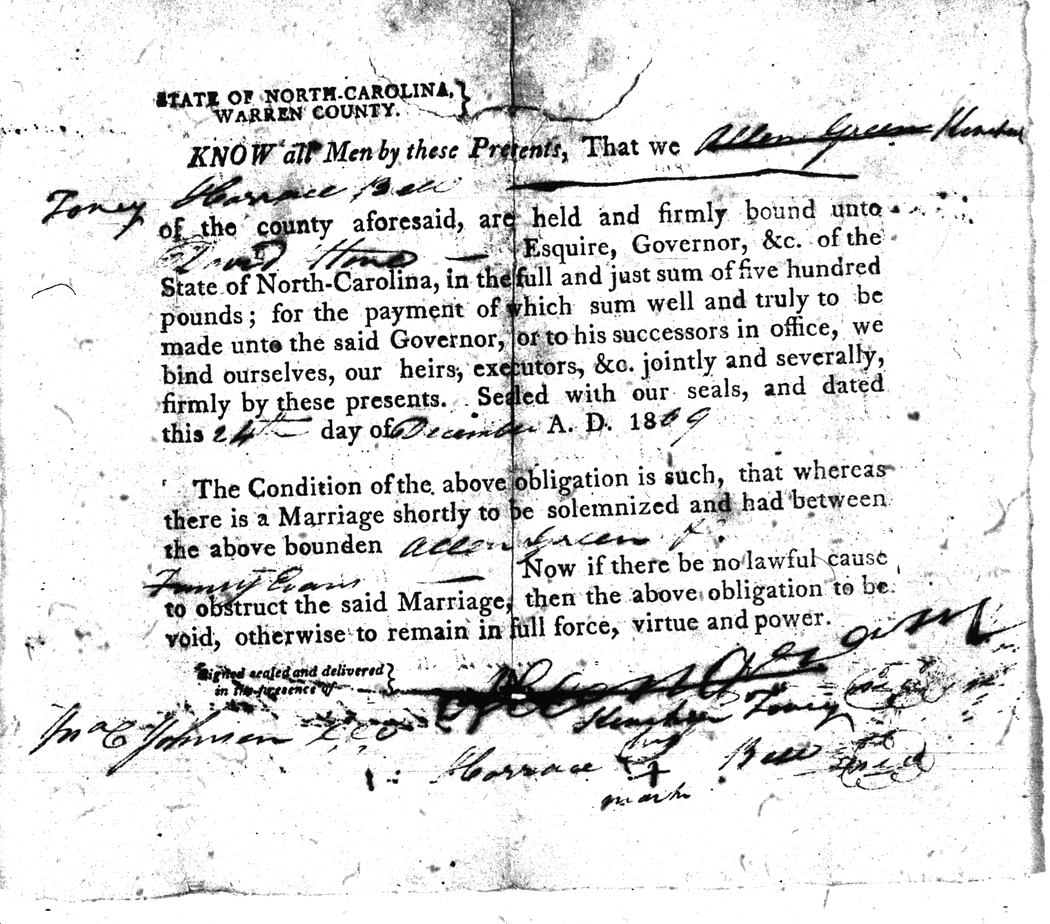 STATE OF NORTH-CAROLINA,
WARREN COUNTY.
KNOW all Men by these Presents, That we Allen Green
Toney Horrace Bell
of the county aforesaid, are held and firmly bound unto
David Stone Esquire, Governor, &c. of the
State of North-Carolina, in the full and just sum of five hundred
pounds; for the payment of which sum well and truly to be
made unto the said Governor, or to his successors in office, we
bind ourselves, our heirs, executors, &c. jointly and severally,
firmly by these presents. Sealed with our seals, and dated
this 24th day of December A. D. 1809
The Condition of the above obligation is such, that whereas
there is a Marriage shortly to be solemnized and had between
the above bounden Allen Green &
Fanny Evans Now if there be no lawful cause
to obstruct the said Marriage, then the above obligation to be
void, otherwise to remain in full force, virtue and power.
Signed sealed and delivered
in the presence of
Toney
Johnson
Horrace Bell
mark